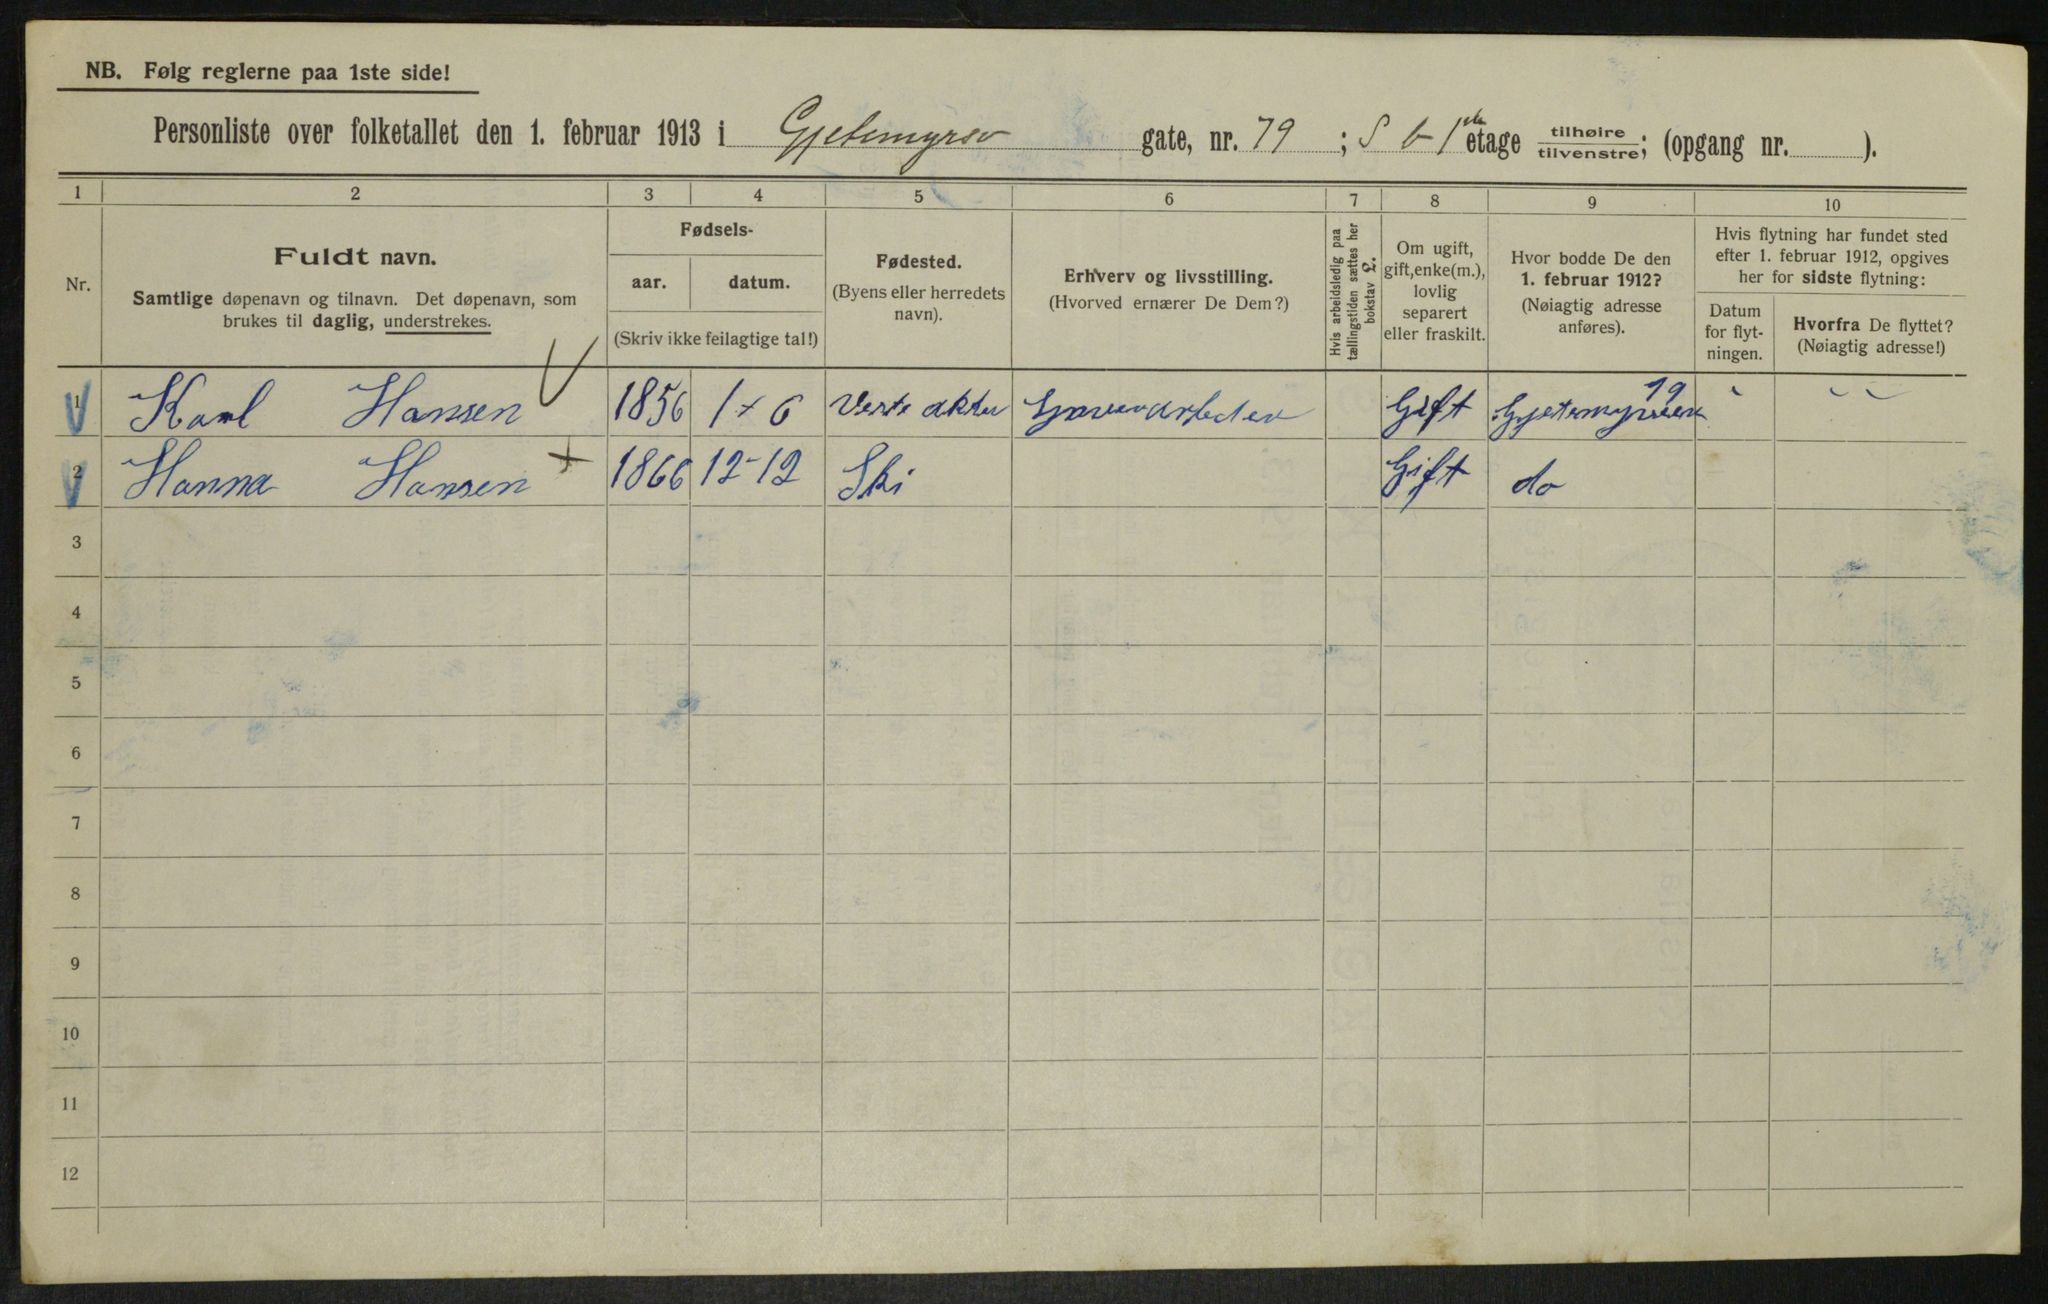 NB. Følg reglerne paa 1ste side!
Personliste over folketallet den 1. februar 1913 i Gjetemyrsv gate, nr. 79 ; S b-1ste etage tilhøire / tilvenstre; (opgang nr. ).
1 2 3 4 5 6 7 8 9 10
Nr.
Fuldt navn.
Samtlige døpenavn og tilnavn. Det døpenavn, som
brukes til daglig, understrekes.
Fødsels-
aar. datum.
(Skriv ikke feilagtige tal!)
Fødested.
(Byens eller herredets
navn).
Erhverv og livsstilling.
(Hvorved ernærer De Dem?)
Hvis arbeidsledig paa
tællingstiden sættes her
bokstav L.
Om ugift,
gift, enke(m.),
lovlig
separert
eller fraskilt.
Hvor bodde De den
1. februar 1912?
(Nøiagtig adresse
anføres).
Hvis flytning har fundet sted
efter 1. februar 1912, opgives
her for sidste flytning:
Datum
for flyt-
ningen.
Hvorfra De flyttet?
(Nøiagtig adresse!)
1 Karl Hansen 1856 1 + 6 Vestr Gift 79
2 Hanna Hansen + 1866 12-12 Ski Gift do
3
4
5
6
7
8
9
10
11
12